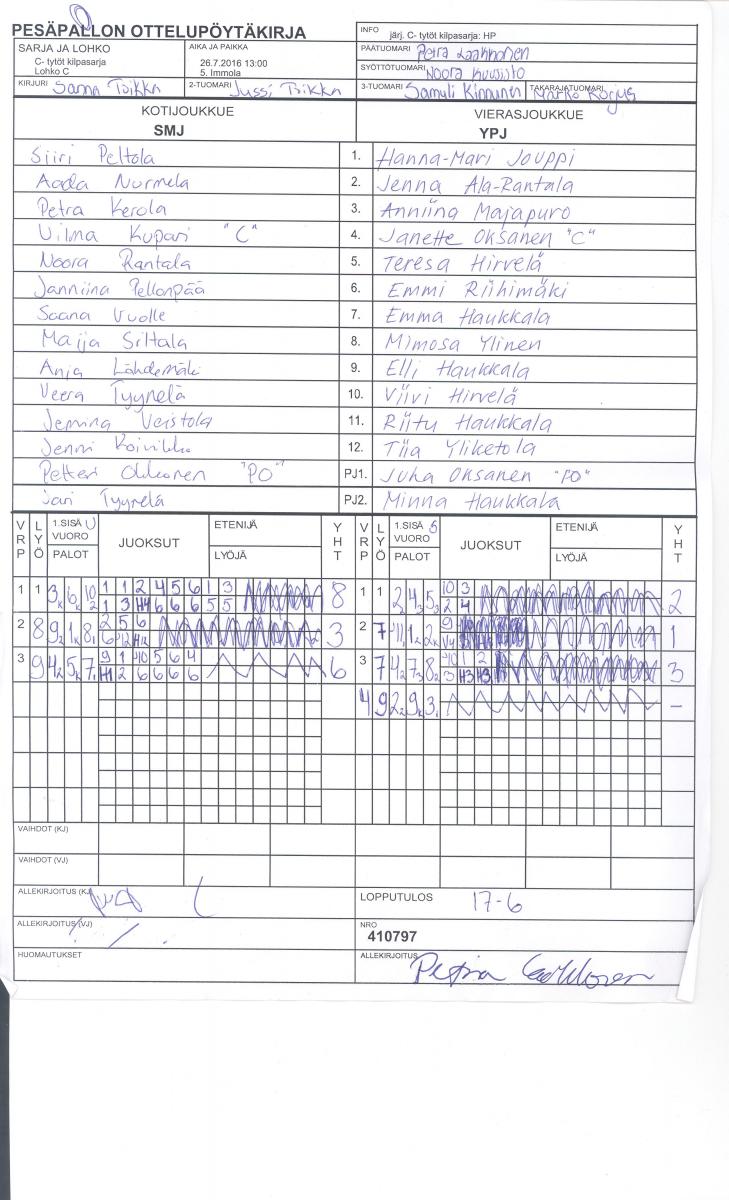 PESÄPALLON OTTELUPÖYTÄKIRJA
INFO järj. C- tytöt kilpasarja: HP
SARJA JA LOHKO
C- tytöt kilpasarja
Lohko C
AIKA JA PAIKKA
26.7.2016 13:00
5. Immola
PÄÄTUOMARI Petra Laakkonen
SYÖTTÖTUOMARI Noora Kuusisto
KIRJURI Sanna Toikka
2-TUOMARI Jussi Toikka
3-TUOMARI Samuli Kinnunen
TAKARAJATUOMARI Marko Korjus
KOTIJOUKKUE
SMJ
VIERASJOUKKUE
YPJ
Siiri Peltola 1. Hanna-Mari Jouppi
Aada Nurmela 2. Jenna Ala-Rantala
Petra Kerola 3. Anniina Majapuro
Vilma Kupari "C" 4. Janette Oksanen "C"
Noora Rantala 5. Teresa Hirvelä
Janniina Pellonpää 6. Emmi Riihimäki
Saana Vuolle 7. Emma Haukkala
Maija Siltala 8. Mimosa Ylinen
Anja Lähdemäki 9. Elli Haukkala
Veera Tyynelä 10. Viivi Hirvelä
Jemina Veistola 11. Riitu Haukkala
Jenni Koivikko 12. Tiia Yliketola
Petteri Okkonen "PO" PJ1. Juha Oksanen "PO"
Jari Tyynelä PJ2. Minna Haukkala
VRP LYÖ 1.SISÄ U VUORO PALOT JUOKSUT ETENIJÄ LYÖJÄ YHT
VRP LYÖ 1.SISÄ S VUORO PALOT JUOKSUT ETENIJÄ LYÖJÄ YHT
1 1 8
1 1 2
2 8 3
2 7 1
3 9 6
3 7 3
4 9 -
VAIHDOT (KJ)
VAIHDOT (VJ)
ALLEKIRJOITUS (KJ)
LOPPUTULOS 17-6
ALLEKIRJOITUS (VJ)
NRO
410797
HUOMAUTUKSET
ALLEKIRJOITUS Petra Laakkonen